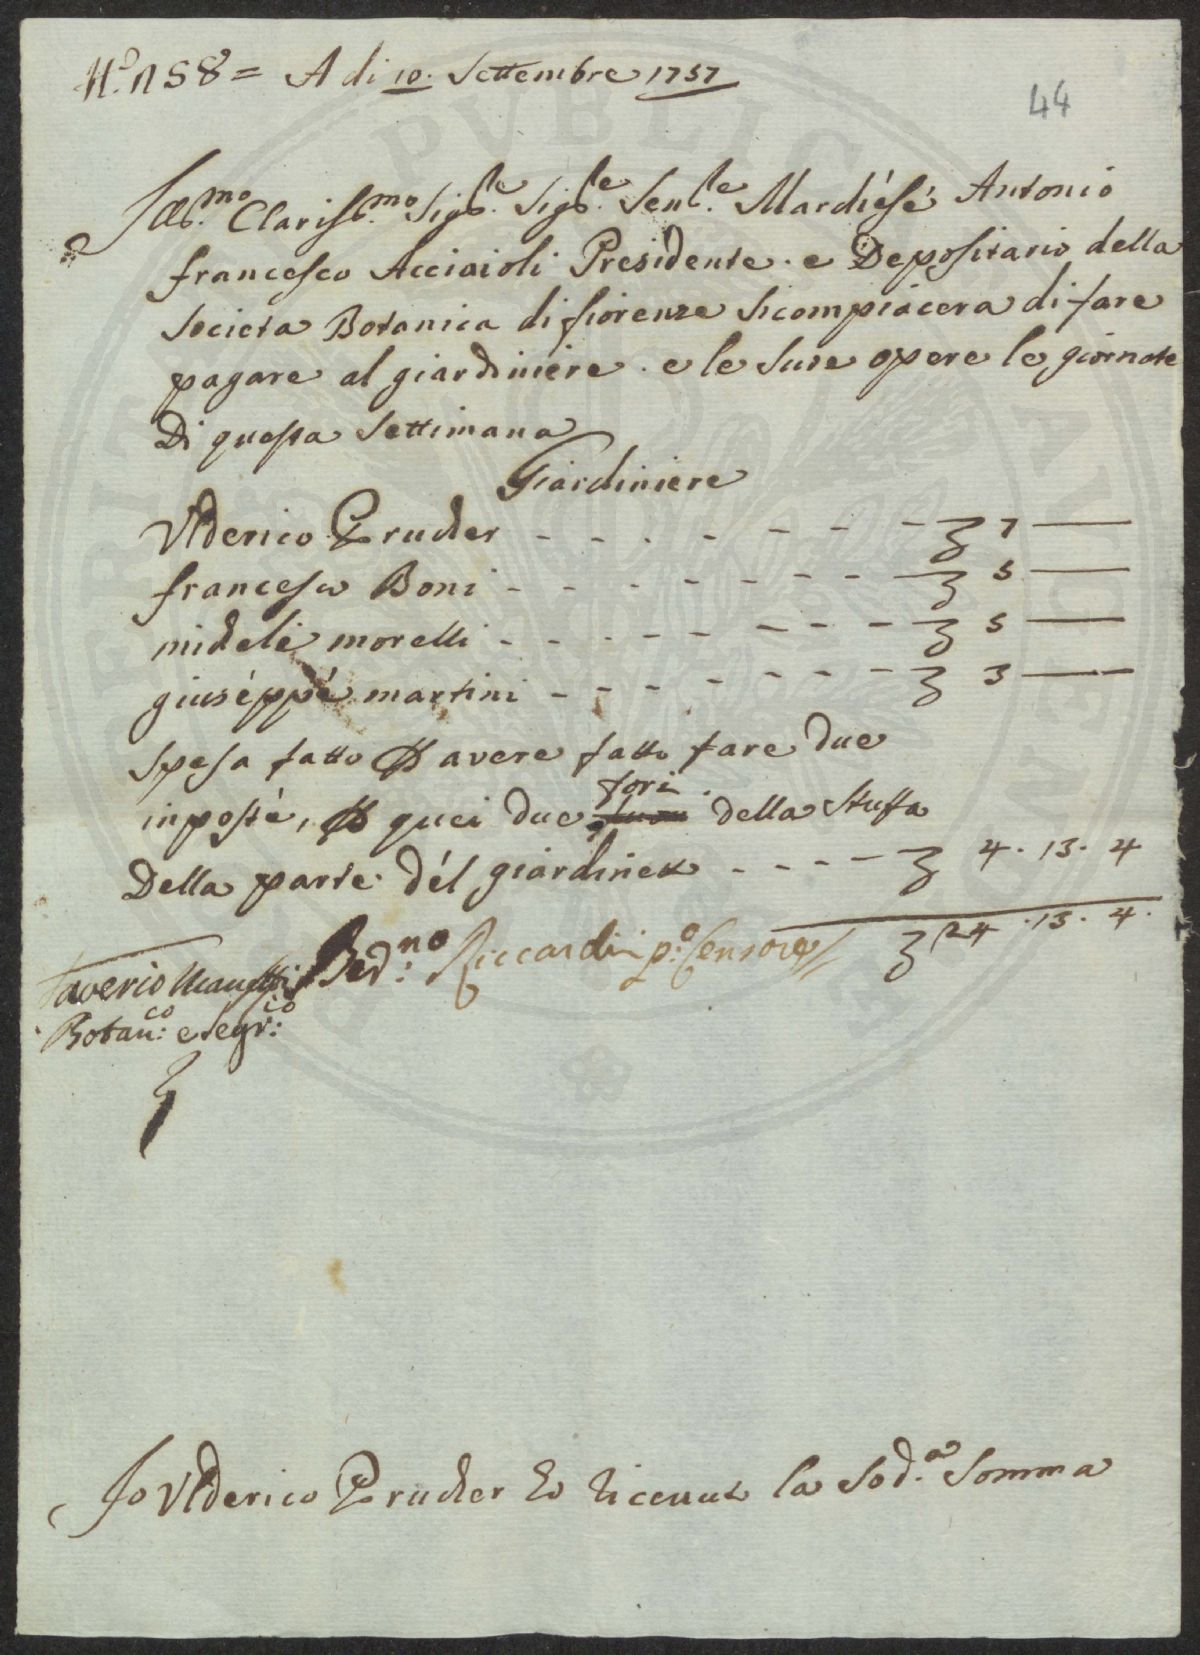 N.º 158 = A di 10. Settembre 1757
44
Ill.mo Clariss.mo Sig.re Sig.re Sen.re Marchese Antonio
francesco Acciaioli Presidente. e Depositario della
Societa Botanica di fiorenze Si compiacera di fare
pagare al giardiniere. e le Sure opere le giornate
Di questa Settimana
Giardiniere
Vlderico Prucker - - - - - - - ʒ 7 —
francesco Boni - - - - - - - - ʒ 5 —
michele morelli - - - - - - - - ʒ 5 —
giuseppe martini - - - - - - - - ʒ 3 —
Spesa fatto ꝑ avere fatto fare due
inposte, ꝑ quei due fori della Stufa
Della parte del giardinetto - - - - ʒ 4. 13. 4
ʒ 24. 13. 4.
Saverio Manetti Bern.no Riccardi p.º Censore
Botan.co e Segr.io
Io Vlderico Prucker Ho Riceuuto la Sod.a Somma